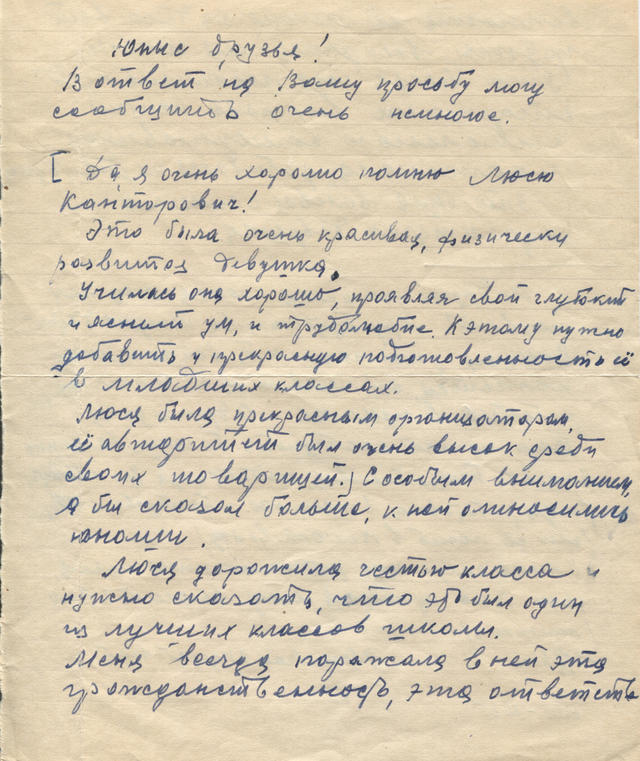 Юные друзья!
В ответ на Вашу просьбу могу
сообщить очень немногое.
[ Да я очень хорошо помню Люсю
Канторович!
Это была очень красивая, физически
развитая девушка.
Училась она хорошо, проявляя свой глубокий
и ясный ум, и трудолюбие. К этому нужно
добавить и прекрасную подготовленность её
в младших классах.
Люся была прекрасным организатором,
её авторитет был очень высок среди
своих товарищей.] С особым вниманием,
я бы сказал больше, к ней относились
юноши.
Люся дорожила честью класса и
нужно сказать, что это был один
из лучших классов школы.
Меня всегда поражала в ней эта
гражданственность, эта ответств